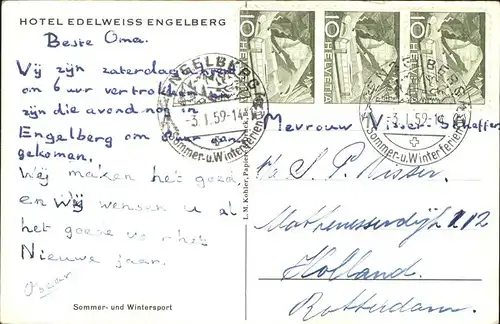 HOTEL EDELWEISS ENGELBERG
Beste Oma.
Wij zijn zaterdag
om 6 uur vertrokken
zijn die avond nog in
Engelberg om uur
gekoman.
Wij maken het goed
en Wij wensen u al
het goede voor het
Nieuwe jaar.
Oscar
Sommer- und Wintersport
L. M. Kohler, Papeterie
10 HELVETIA
10 HELVETIA
10 HELVETIA
ENGELBERG
-3.I.59-14
Sommer- u. Winterferien
ENGELBERG
-3.I.59-14
Sommer- u. Winterferien
Mevrouw Visser-Scheffer
S. P. Visser.
Mathenesserdijk 212
Holland.
Rotterdam.